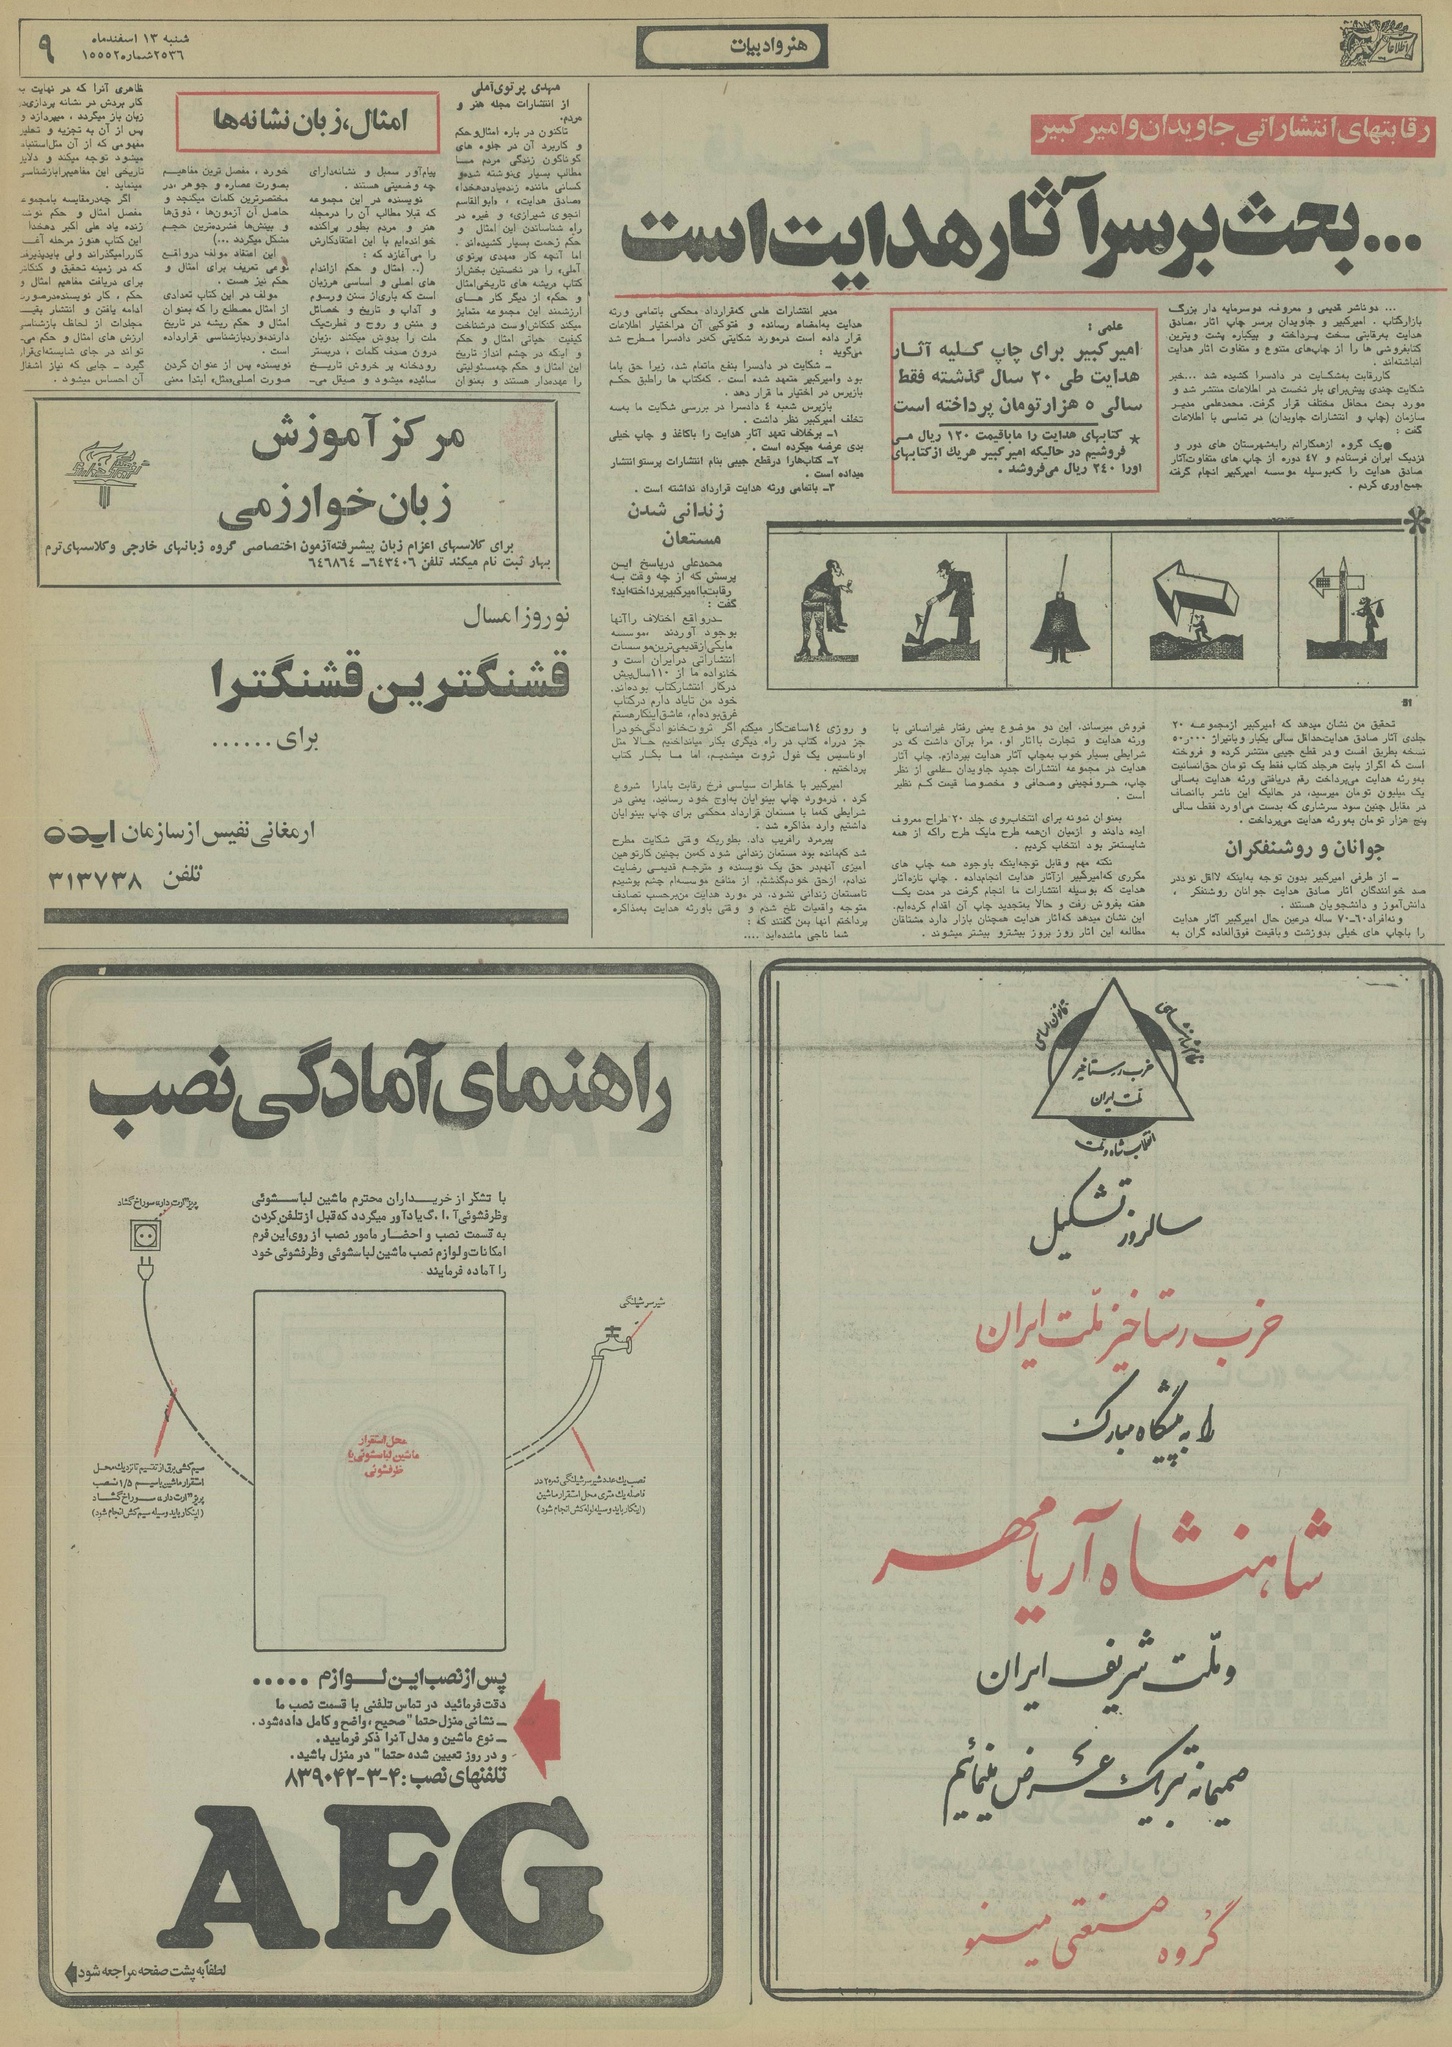 شنبه ۱۳ اسفندماه
۲۵۳۶ شماره ۱۵۵۵۲
۹
هنر و ادبیات
اطلاعات
رقابتهای انتشاراتی جاویدان و امیرکبیر
...بحث بر سر آثار هدایت است
... دو ناشر قدیمی و معروف، دو سرمایه دار بزرگ
بازار کتاب . امیرکبیر و جاویدان برسر چاپ آثار ،صادق
هدایت به‌رقابتی سخت پرداخته و بیکباره پشت ویترین
کتابفروشی ها را از چاپ‌های متنوع و متفاوت آثار هدایت
انباشته‌اند .
کاررقابت به‌شکایت در دادسرا کشیده شد ...خبر
شکایت چندی پیش‌برای بار نخست در اطلاعات منتشر شد و
مورد بحث محافل مختلف قرار گرفت. محمدعلمی مدیر
سازمان (چاپ و انتشارات جاویدان) در تماسی با اطلاعات
گفت :
●یک گروه ازهمکارانم رابه‌شهرستان های دور و
نزدیک ایران فرستادم و ۴۷ دوره از چاپ های متفاوت‌آثار
صادق هدایت را که‌بوسیله موسسه امیرکبیر انجام گرفته
جمع‌آوری کردم .
علمی :
امیرکبیر برای چاپ کلیه آثار
هدایت طی ۲۰ سال گذشته فقط
سالی ۵ هزارتومان پرداخته است
★ کتابهای هدایت را ما باقیمت ۱۲۰ ریال می
فروشیم در حالیکه امیرکبیر هریك ازکتابهای
اورا ۲۴۰ ریال می‌فروشد .
مدیر انتشارات علمی که‌قرارداد محکمی باتمامی ورثه
هدایت به‌امضاء رسانده و فتوکپی آن دراختیار اطلاعات
قرار داده است درمورد شکایتی که‌در دادسرا مطرح شد
می‌گوید :
ـ شکایت در دادسرا بنفع ماتمام شد، زیرا حق باما
بود وامیرکبیر متهد شده است . که‌کتاب ها راطبق حکم
بازپرس در اختیار ما قرار دهد .
بازپرس شعبه ٤ دادسرا در بررسی شکایت ما به‌سه
تخلف امیرکبیر نظر داشت .
۱ـ برخلاف تعهد آثار هدایت را باکاغذ و چاپ خیلی
بدی عرضه میکرده است .
۲ـ کتاب‌هارا درقطع جیبی بنام انتشارات پرستو انتشار
میداده است .
۳ـ باتمامی ورثه هدایت قرارداد نداشته است .
زندانی شدن
مستعان
محمدعلی درپاسخ این
پرسش که از چه وقت به
رقابت‌باامیرکبیرپرداخته‌اید؟
گفت :
ـدرواقع اختلاف راآنها
بوجود آوردند ،موسسه
مایکی‌ازقدیمی‌ترین‌موسسات
انتشاراتی درایران است و
خانواده ما از ۱۱۰سال‌پیش
درکار انتشارکتاب بوده‌اند.
خود من تایاد دارم درکتاب
غرق‌بوده‌ام، عاشق‌اینکارهستم
و روزی ۱٤ساعت‌کار میکنم اگر ثروت‌خانوادگی‌خودرا
جز درراه کتاب در راه دیگری بکار میانداختیم حالا مثل
اوناسیس یک غول ثروت میشدیم، اما ما بکار کتاب
پرداختیم .
امیرکبیر با خاطرات سیاسی فرخ رقابت بامارا شروع
کرد . درمورد چاپ بینوایان به‌اوج خود رسانید. یعنی در
شرایطی که‌ما با مستعان قرارداد محکمی برای چاپ بینوایان
داشتیم وارد مذاکره شد .
پیرمرد رافریب داد. بطوریکه وقتی شکایت مطرح
شد کم‌مانده بود مستعان زندانی شود که‌من بچنین کارتوهین
آمیزی آنهم‌در حق یک نویسنده و مترجم قدیمی رضایت
ندادم، ازحق خودم‌گذشتم، از منافع موسسه‌ام چشم پوشیدم
تامستعان زندانی نشود. در مورد هدایت من‌برحسب تصادف
متوجه واقعیات تلخ شدم و وقتی باورثه هدایت به‌مذاکره
پرداختم آنها بمن گفتند که :
شما ناجی ماشده‌اید ....
تحقیق من نشان میدهد که امیرکبیر ازمجموعه ۲۰
جلدی آثار صادق هدایت‌حداقل سالی یکبار وباتیراژ ۵۰٫۰۰۰
نسخه بطریق افست و در قطع جیبی منتشر کرده و فروخته
است که اگراز بابت هرجلد کتاب فقط یک تومان حق‌انسانیت
به‌ورثه هدایت می‌پرداخت رقم دریافتی ورثه هدایت به‌سالی
یک میلیون تومان میرسید، در حالیکه این ناشر باانصاف
در مقابل چنین سود سرشاری که بدست می‌آورد فقط سالی
پنج هزار تومان به‌ورثه هدایت می‌پرداخت .
جوانان و روشنفکران
ـ از طرفی امیرکبیر بدون توجه به‌اینکه لااقل نوددر
صد خوانندگان آثار صادق هدایت جوانان روشنفکر ،
دانش‌آموز و دانشجویان هستند .
ونه‌افراد ۶۰ـ۷۰ ساله درعین حال امیرکبیر آثار هدایت
را باچاپ های خیلی بدوزشت وباقیمت فوق‌العاده گران به
فروش میرساند. این دو موضوع یعنی رفتار غیرانسانی با
ورثه هدایت و تجارت باآثار او، مرا برآن داشت که در
شرایطی بسیار خوب به‌چاپ آثار هدایت بپردازم. چاپ آثار
هدایت در مجموعه انتشارات جدید جاویدان ـعلمی از نظر
چاپ، حروفچینی وصحافی و مخصوصا قیمت کم نظیر
است .
بعنوان نمونه برای انتخاب‌روی جلد ۲۰ طراح معروف
ایده دادند و ازمیان آن‌همه طرح مایک طرح راکه از همه
شایسته‌تر بود انتخاب کردیم .
نکته مهم وقابل توجه‌اینکه باوجود همه چاپ های
مکرری که‌امیرکبیر ازآثار هدایت انجام‌داده . چاپ تازه‌آثار
هدایت که بوسیله انتشارات ما انجام گرفت در مدت یک
هفته بفروش رفت و حالا به‌تجدید چاپ آن اقدام کرده‌ایم.
این نشان میدهد که‌آثار هدایت همچنان بازار دارد مشتاقان
مطالعه این آثار روز بروز بیشترو بیشتر میشوند .
امثال،زبان نشانه‌ها
مهدی پرتوی‌آملی
از انتشارات مجله هنر و
مردم.
تاکنون در باره امثال‌وحکم
و کاربرد آن در جلوه های
گوناگون زندگی مردم ما
مطالب بسیار نوشته شده‌و
کسانی مانند زنده‌یاد«دهخدا»
«صادق هدایت» ، «ابوالقاسم
انجوی شیرازی» و غیره در
راه شناساندن این امثال و
حکم زحمت بسیار کشیده‌اند .
اما آنچه کار «مهدی پرتوی
آملی» را در نخستین بخش‌از
کتاب «ریشه های تاریخی‌امثال
و حکم» از دیگر کار های
ارزشمند این مجموعه متمایز
میکند کنکاش‌اوست درشناخت
کیفیت حیاتی امثال و حکم
و اینکه در چشم انداز تاریخ
این امثال و حکم چه‌مسئولیتی
را عهده‌دار هستند و بعنوان
پیام‌آور سمبل و نشانه‌دارای
چه وضعیتی هستند .
نویسنده در این مجموعه
که قبلا مطالب آن را درمجله
هنر و مردم بطور پراکنده
خوانده‌ایم با این اعتقادکارش
را می‌آغازد که :
(.. امثال و حکم ازاندام
های اصلی و اساسی هرزبان
است که باری‌از سنن و رسوم
و آداب و تاریخ و خصائل
و منش و روح و فطرت‌یک
ملت را بدوش میکشد .زبان
درون صدف کلمات ، دربستر
رودخانه پر خروش تاریخ
سائیده میشود و صیقل می-
خورد ، مفصل ترین مفاهیم
بصورت عصاره و جوهر ،در
مختصرترین کلمات میگنجد و
حاصل آن آزمون‌ها ، ذوق‌ها
و بینش‌ها فشرده‌ترین حجم
مشکل میگردد ...)
این اعتقاد مولف درواقع
نوعی تعریف برای امثال و
حکم نیز هست .
مولف در این کتاب تعدادی
از امثال مصطلح را که بعنوان
امثال و حکم ریشه در تاریخ
دارند،موردبازشناسی قرارداده
است .
نویسنده پس از عنوان کردن
صورت اصلی«مثل» ابتدا معنی
ظاهری آنرا که در نهایت
کار بردش در نشانه پردازی
زبان باز میگردد ، میپردازد و
پس از آن به تجزیه و تحلیل
مفهومی که از آن مثل‌استنباط
میشود توجه میکند و دلایل
تاریخی این مفاهیم‌رابازشناسی
مینماید .
اگر چه‌درمقایسه بامجموعه
مفصل امثال و حکم نوشته
زنده یاد علی اکبر دهخدا
این کتاب هنوز مرحله
کاررامیگذراند ولی بایدپذیرفت
که در زمینه تحقیق و کنکاش
برای دریافت مفاهیم امثال و
حکم ، کار نویسنده‌درصورت
ادامه یافتن و انتشار بقیه
مجلدات از لحاظ بازشناسی
ارزش های امثال و حکم می-
تواند در جای شایسته‌ای‌قرار
گیرد ـ جایی که نیاز اشغال
آن احساس میشود .
مرکز آموزش
زبان خوارزمی
برای کلاسهای اعزام زبان پیشرفته‌آزمون اختصاصی گروه زبانهای خارجی وکلاسهای‌ترم
بهار ثبت نام میکند تلفن ۶۴۳۴۰۶ـ ۶۴۶۸۶۴
نوروز امسال
قشنگترین قشنگترا
برای......
ارمغانی نفیس از سازمان
تلفن ۳۱۳۷۳۸
نظام شاهنشاهی
قانون اساسی
حزب رستاخیز
ملت ایران
انقلاب شاه و ملت
سالروز تشکیل
حزب رستاخیز ملّت ایران
را به پیشگاه مبارک
شاهنشاه آریامهر
و ملّت شریف ایران
صمیمانه تبریک عرض مینمائیم
گروه صنعتی مینو
راهنمای آمادگی نصب
با تشکر از خریداران محترم ماشین لباسشوئی
وظرفشوئی آ.ا.گ یادآور میگردد که‌قبل از تلفن کردن
به قسمت نصب و احضار مامور نصب از روی‌این فرم
امکانات‌و لوازم نصب ماشین لباسشوئی وظرفشوئی خود
را آماده فرمایند
پریز"ارت دار»سوراخ‌گشاد
شیر سرشیلنگی
محل استقرار
ماشین لباسشوئی یا
ظرفشوئی
سیم‌کشی برق از تقسیم تانزدیك محل
استقرار ماشین باسیم ۱/۵ نصب
پریز"ارت دار»سوراخ گشاد
(اینکار باید وسیله سیم‌کش انجام شود)
نصب یك عدد شیر سرشیلنگی نمره ۲ در
فاصله یك متری محل استقرار ماشین
(اینکار باید وسیله لوله کش انجام شود)
پس از نصب این لوازم .....
دقت فرمائید در تماس تلفنی با قسمت نصب ما
ـ نشانی منزل حتما" صحیح ،واضح و کامل داده شود .
ـ نوع ماشین و مدل آنرا ذکر فرمایید.
و در روز تعیین شده حتما" در منزل باشید.
تلفنهای نصب :۴-۳-۸۳۹۰۴۲
AEG
لطفاً به پشت صفحه مراجعه شود